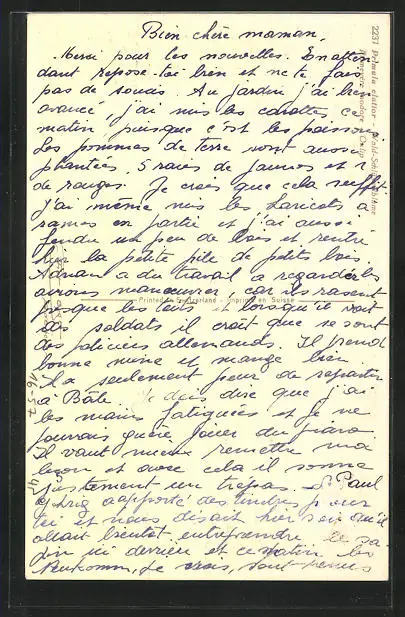 Bien chère maman,
Merci pour les nouvelles. En atten
dant repose-toi bien et ne te fais
pas de soucis. Au jardin j'ai bien
avancé, j'ai mis les carottes ce
matin, puisque c'est les poissons
Les pommes de terre sont aussi
plantées, 5 raies de jaunes et 1
de rouges. Je crois que cela suffit
J'ai même mis les haricots à
rames en partie et j'ai aussi
fendu un peu de bois et rentré
la petite pile de petits bois.
Adrian a du travail à regarder les
avions manoeuvrer, car ils rasent
presque les toits et lorsqu'il voit
des soldats il croit que ce sont
des policiers allemands. Il prend
bonne mine et mange bien.
Il a seulement peur de repartir
à Bâle. Je dois dire que j'ai
les mains fatiguées et je ne
pourrais guère jouer du piano
Il vaut mieux remettre ma
leçon et avec cela il sonne
justement un trépas. Paul
a apporté des timbres pour
toi et nous disait hier soir qu'il
allait bientôt entreprendre le
ici derrière et ce matin les
je crois, sont venus
Printed in Switzerland - Imprimé en Suisse
2231 Primula elatior - Wald-Schlüsselblume